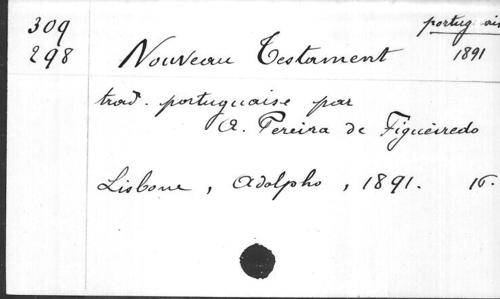 309
298
portug
1891
Nouveau Testament
trad. portugaise par
A. Pereira de Figueiredo
Lisbone, Adolpho, 1891. 16.